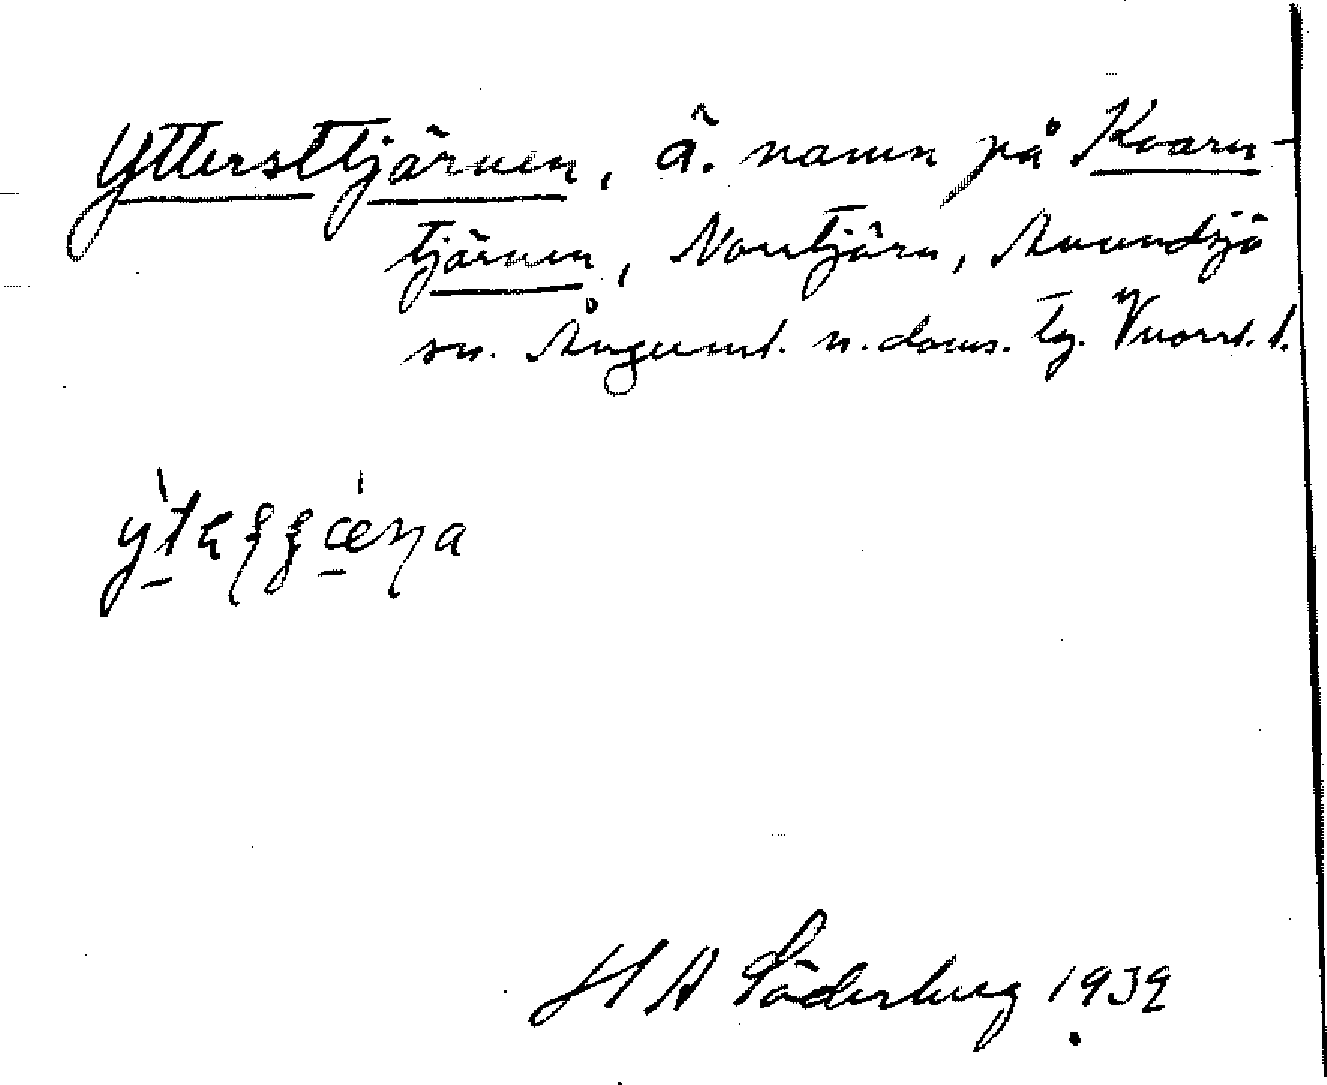 Ytterst tjärnen, ä. namn på Kvarn-
tjärnen, Norrtjärn, Anundsjö
sn. Ångerml. n. doms. tg. Vnorrl. l.
H A Söderberg 1939